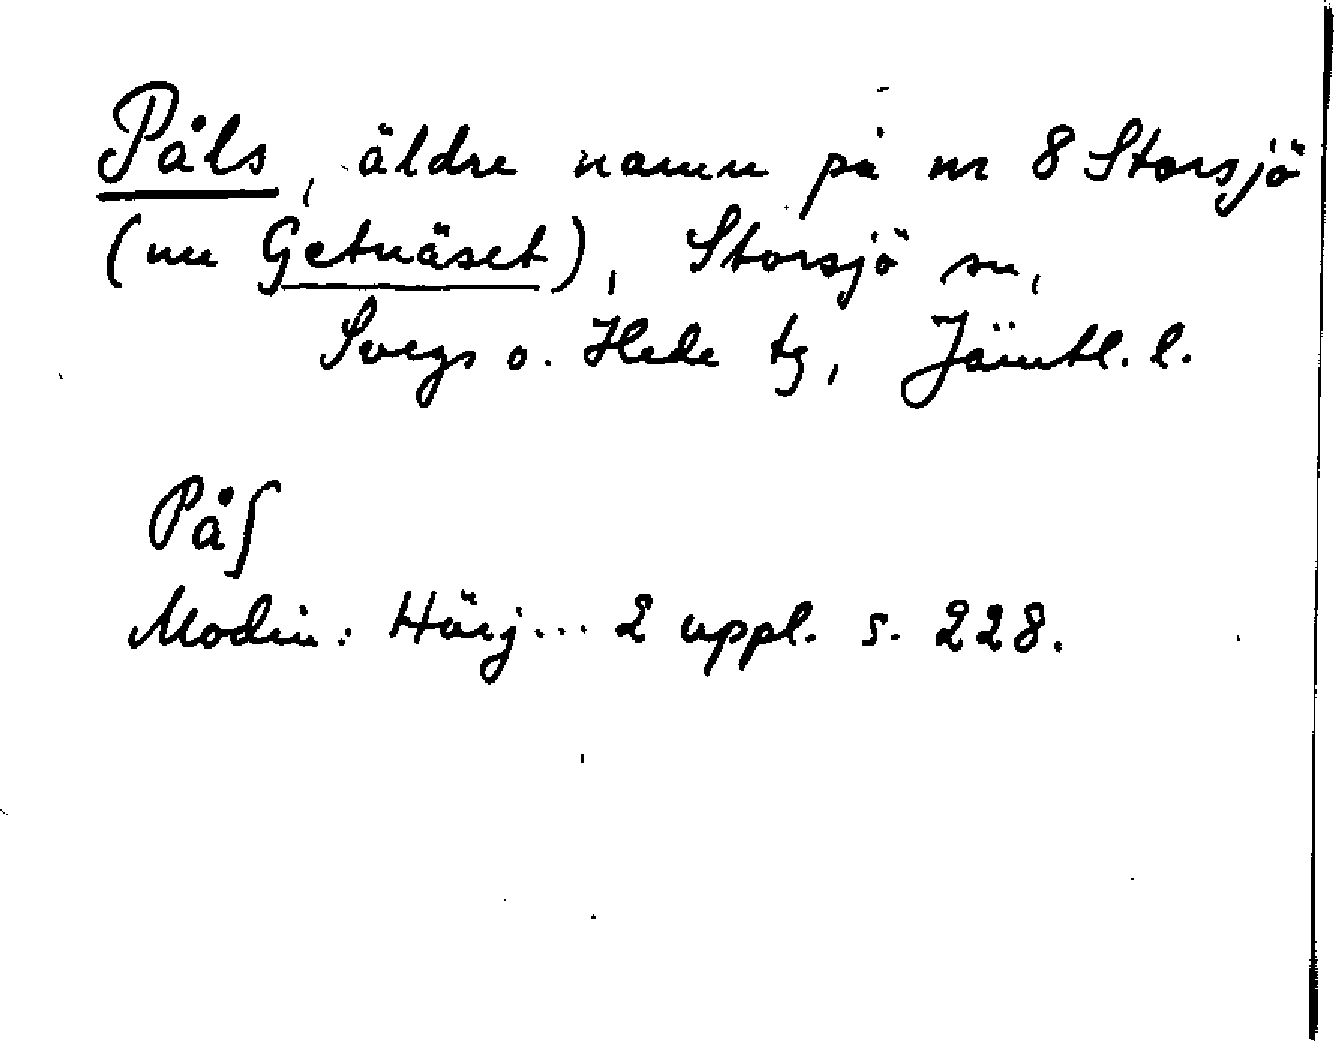 Påls, äldre namn på nr 8 Storsjö
(nu Getnäset), Storsjö sn,
Svegs o. Hede tg, Jämtl. l.
Påʃ
Modin: Härj... 2 uppl. s. 228.